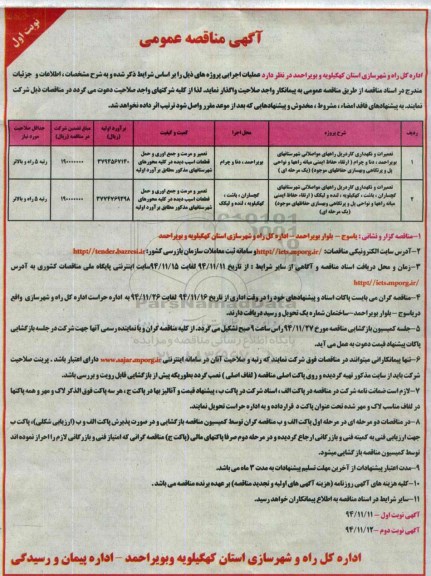 نوبت اول
آگهی مناقصه عمومی
اداره کل راه و شهرسازی استان کهکیلویه و بویراحمد در نظر دارد عملیات اجرایی پروژه های ذیل را بر اساس شرایط ذکر شده و به شرح مشخصات ، اطلاعات و جزییات
مندرج در اسناد مناقصه از طریق مناقصه عمومی به پیمانکار واجد صلاحیت واگذار نماید. لذا از کلیه شرکتهای واجد صلاحیت دعوت می گردد در مناقصات ذیل شرکت
نمایند. به پیشنهادهای فاقد امضاء ، مشروط ، مخدوش و پیشنهادهایی که بعد از موعد مقرر واصل شود ترتیب اثر داده نخواهد شد.
ردیف
شرح پروژه
محل اجرا
کمیت و کیفیت
برآورد اولیه (ریال)
مبلغ تضمین شرکت در مناقصه (ریال)
حداقل صلاحیت مورد نیاز
۱
تعمیرات و نگهداری کاردریل راههای مواصلاتی شهرستانهای
بویراحمد ، دنا و چرام ( ارتقاء حفاظ ایمنی میانه راهها و نواحی
پل و پرتگاهی وبهسازی حفاظهای موجود) (یک مرحله ای)
بویراحمد ، دنا و چرام
تعمیر و مرمت و جمع آوری و حمل
قطعات آسیب دیده در کلیه محورهای
شهرستانهای مذکور مطابق بر آورد اولیه
۱۹۰۰۰۰۰۰۰
رتبه ۵ راه و بالاتر
۲
تعمیرات و نگهداری کاردریل راههای مواصلاتی شهرستانهای
گچساران ، باشت ، کهکیلویه ، لنده و لیکک ( ارتقاء حفاظ ایمنی
میانه راهها و نواحی پل و پرتگاهی وبهسازی حفاظهای موجود)
(یک مرحله ای)
گچساران ، باشت ،
کهکیلویه ، لنده و لیکک
تعمیر و مرمت و جمع آوری و حمل
قطعات آسیب دیده در کلیه محورهای
شهرستانهای مذکور مطابق بر آورد اولیه
۱۹۰۰۰۰۰۰۰
رتبه ۵ راه و بالاتر
۱-مناقصه گزار و نشانی : یاسوج - بلوار بویراحمد - اداره کل راه و شهرسازی استان کهکیلویه و بویراحمد
۲-آدرس سایت الکترونیکی مناقصات: http://iets.mporg.ir/ وسامانه ثبت معاملات سازمان بازرسی کشور: http://tender.bazresi.ir
۳-زمان و محل دریافت اسناد مناقصه و آگاهی از سایر شرایط : از تاریخ ۹۴/۱۱/۱۱ لغایت ۹۴/۱۱/۱۵ سایت اینترنتی پایگاه ملی مناقصات کشوری به آدرس
http://iets.mporg.ir/
۴-مناقصه گران می بایست پاکات اسناد و پیشنهادهای خود را در وقت اداری از تاریخ ۹۴/۱۱/۱۶ لغایت ۹۴/۱۱/۲۶ به اداره حراست اداره کل راه و شهرسازی واقع
در یاسوج - بلوار بویراحمد -ساختمان شماره یک تحویل و رسید دریافت دارند.
۵-جلسه کمیسیون بازگشایی مناقصه مورخ ۹۴/۱۱/۲۷ راس ساعت ۹ صبح تشکیل می گردد. از کلیه مناقصه گران و یا نماینده رسمی آنها جهت شرکت در جلسه بازگشایی
پاکات پیشنهاد قیمت دعوت به عمل می آید.
۶-تنها پیمانکارانی میتوانند در مناقصات فوق شرکت نمایند که رتبه و صلاحیت آنان در سامانه اینترنتی www.sajar.mporg.ir دارای اعتبار باشد . پرینت صلاحیت
شرکت باید از سایت مذکور تهیه گردیده و روی پاکت اصلی مناقصه ( لفاف اصلی ) نصب گردد بطوریکه پیش از بازگشایی قابل رویت و بررسی باشد.
۷-لازم است ضمانت نامه شرکت در مناقصه در پاکت الف ، اسناد شرکت در پاکت ب ، پیشنهاد قیمت و آنالیز بها در پاکت ج ، هر سه پاکت فوق الذکر لاک و مهر و همه پاکتها
در لفاف مناسب لاک و مهر شده تحت عنوان پاکت د قرارداده و به اداره حراست تحویل نمایند.
۸-در مناقصات دو مرحله ای در مرحله اول پاکت الف و ب مناقصه گران توسط کمیسیون مناقصه بازگشایی و در صورت پذیرش پاکت الف و ب (ارزیابی شکلی)، پاکت ب
جهت ارزیابی فنی به کمیته فنی و بازرگانی ارجاع گردیده و در مرحله دوم صرفا پاکتهای مالی (پاکت ج) مناقصه گرانی که امتیاز فنی و بازرگانی لازم را احراز نموده اند
توسط کمیسیون مناقصه بازگشایی میشود.
۹-مدت اعتبار پیشنهادات از آخرین مهلت تسلیم پیشنهادات به مدت ۳ ماه می باشد.
۱۰-کلیه هزینه های آگهی روزنامه (هزینه آگهی های اولیه و تجدید مناقصه) بر عهده برنده مناقصه می باشد .
۱۱-سایر شرایط در اسناد مناقصه به اطلاع پیمانکاران خواهد رسید.
آگهی نوبت اول - ۹۴/۱۱/۱۱
آگهی نوبت دوم - ۹۴/۱۱/۱۲
اداره کل راه و شهرسازی استان کهکیلویه وبویراحمد - اداره پیمان و رسیدگی